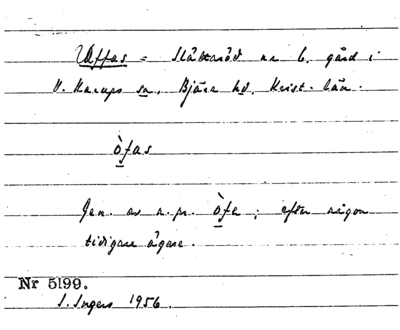 Uffas = Slättaröd nr 6, gård i
V. Karups sn, Bjäre hd, Krist. län.
òfas
Gen. av n. pr. òfe ; efter någon
tidigare ägare.
Nr 5199.
I. Ingers 1956.